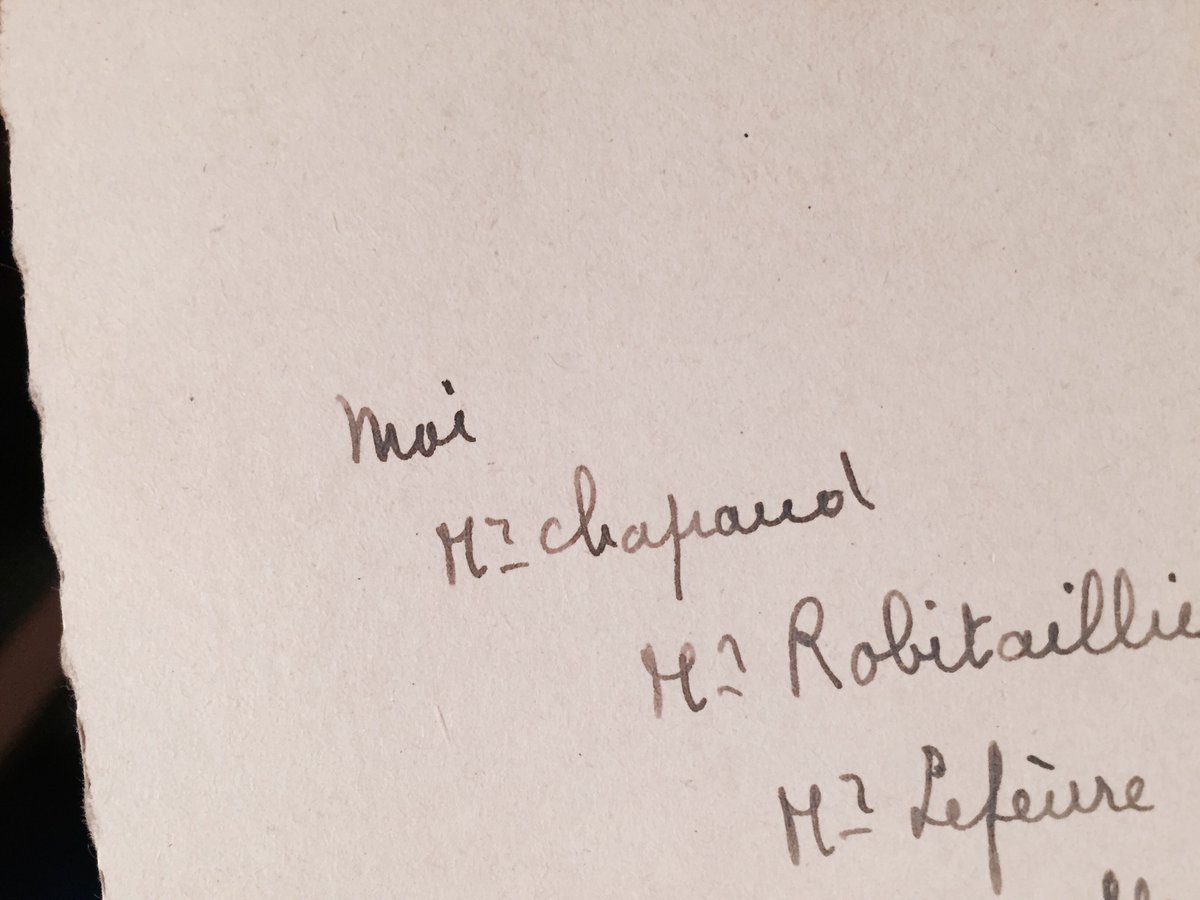 Moi
Mr Chapaud
Mr Robitaillie
Mr Lefèvre